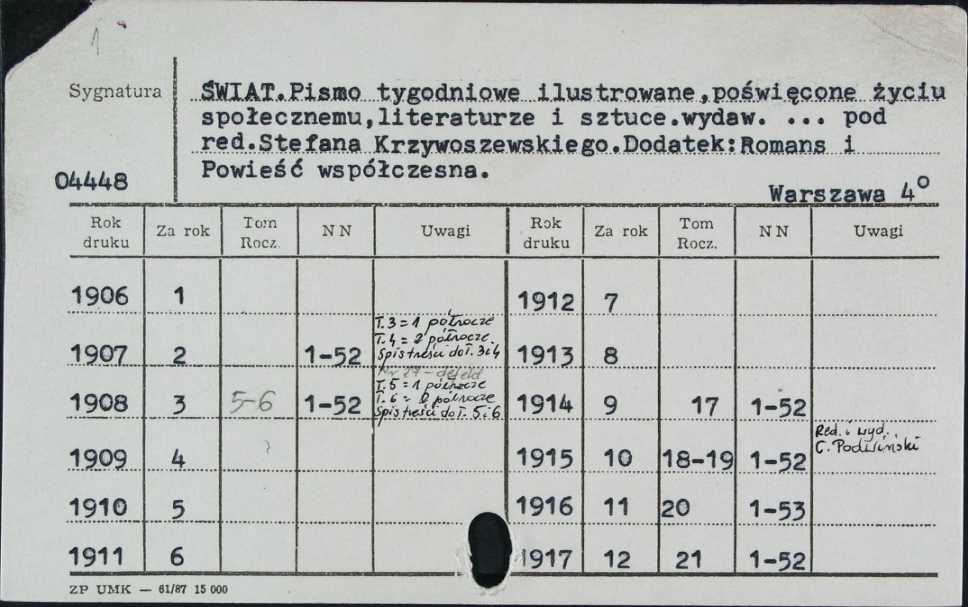 1
Sygnatura
ŚWIAT.Pismo tygodniowe ilustrowane,poświęcone życiu
społecznemu,literaturze i sztuce.wydaw. ... pod
red.Stefana Krzywoszewskiego.Dodatek:Romans i
Powieść współczesna.
04448
Warszawa 4°
Rok druku Za rok Tom Rocz. NN Uwagi Rok druku Za rok Tom Rocz. NN Uwagi
1906 1 1912 7
T.3 = 1 półrocze
T.4 = 2 półrocze.
Spis treści do T. 3 i 4
1907 2 1-52 1913 8
Nr 29 - defekt
T.5 = 1 półrocze
T.6 = 2 półrocze
Spis treści do T. 5 i 6
1908 3 5-6 1-52 1914 9 17 1-52
Red. i wyd.
C. Podwiński
1909 4 1915 10 18-19 1-52
1910 5 1916 11 20 1-53
1911 6 1917 12 21 1-52
ZP UMK — 61/87 15 000